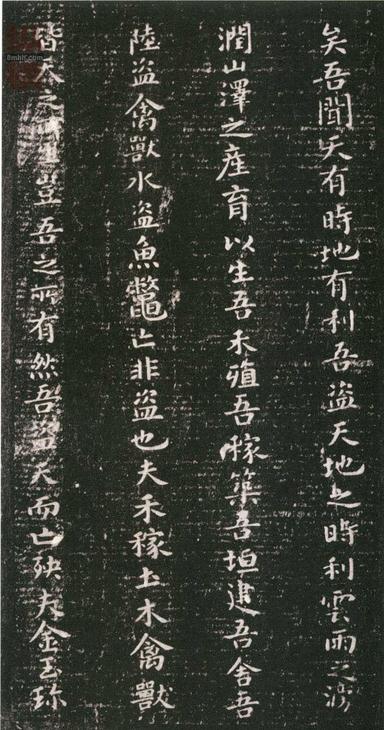 矣吾聞天有時地有利吾盜天地之時利雲雨之滂
潤山澤之產育以生吾禾殖吾稼築吾垣建吾舍吾
陸盜禽獸水盜魚鱉亡非盜也夫禾稼土木禽獸
皆天之 豈吾之所有然吾盜天而亡殃夫金玉珎
8mhlf.com